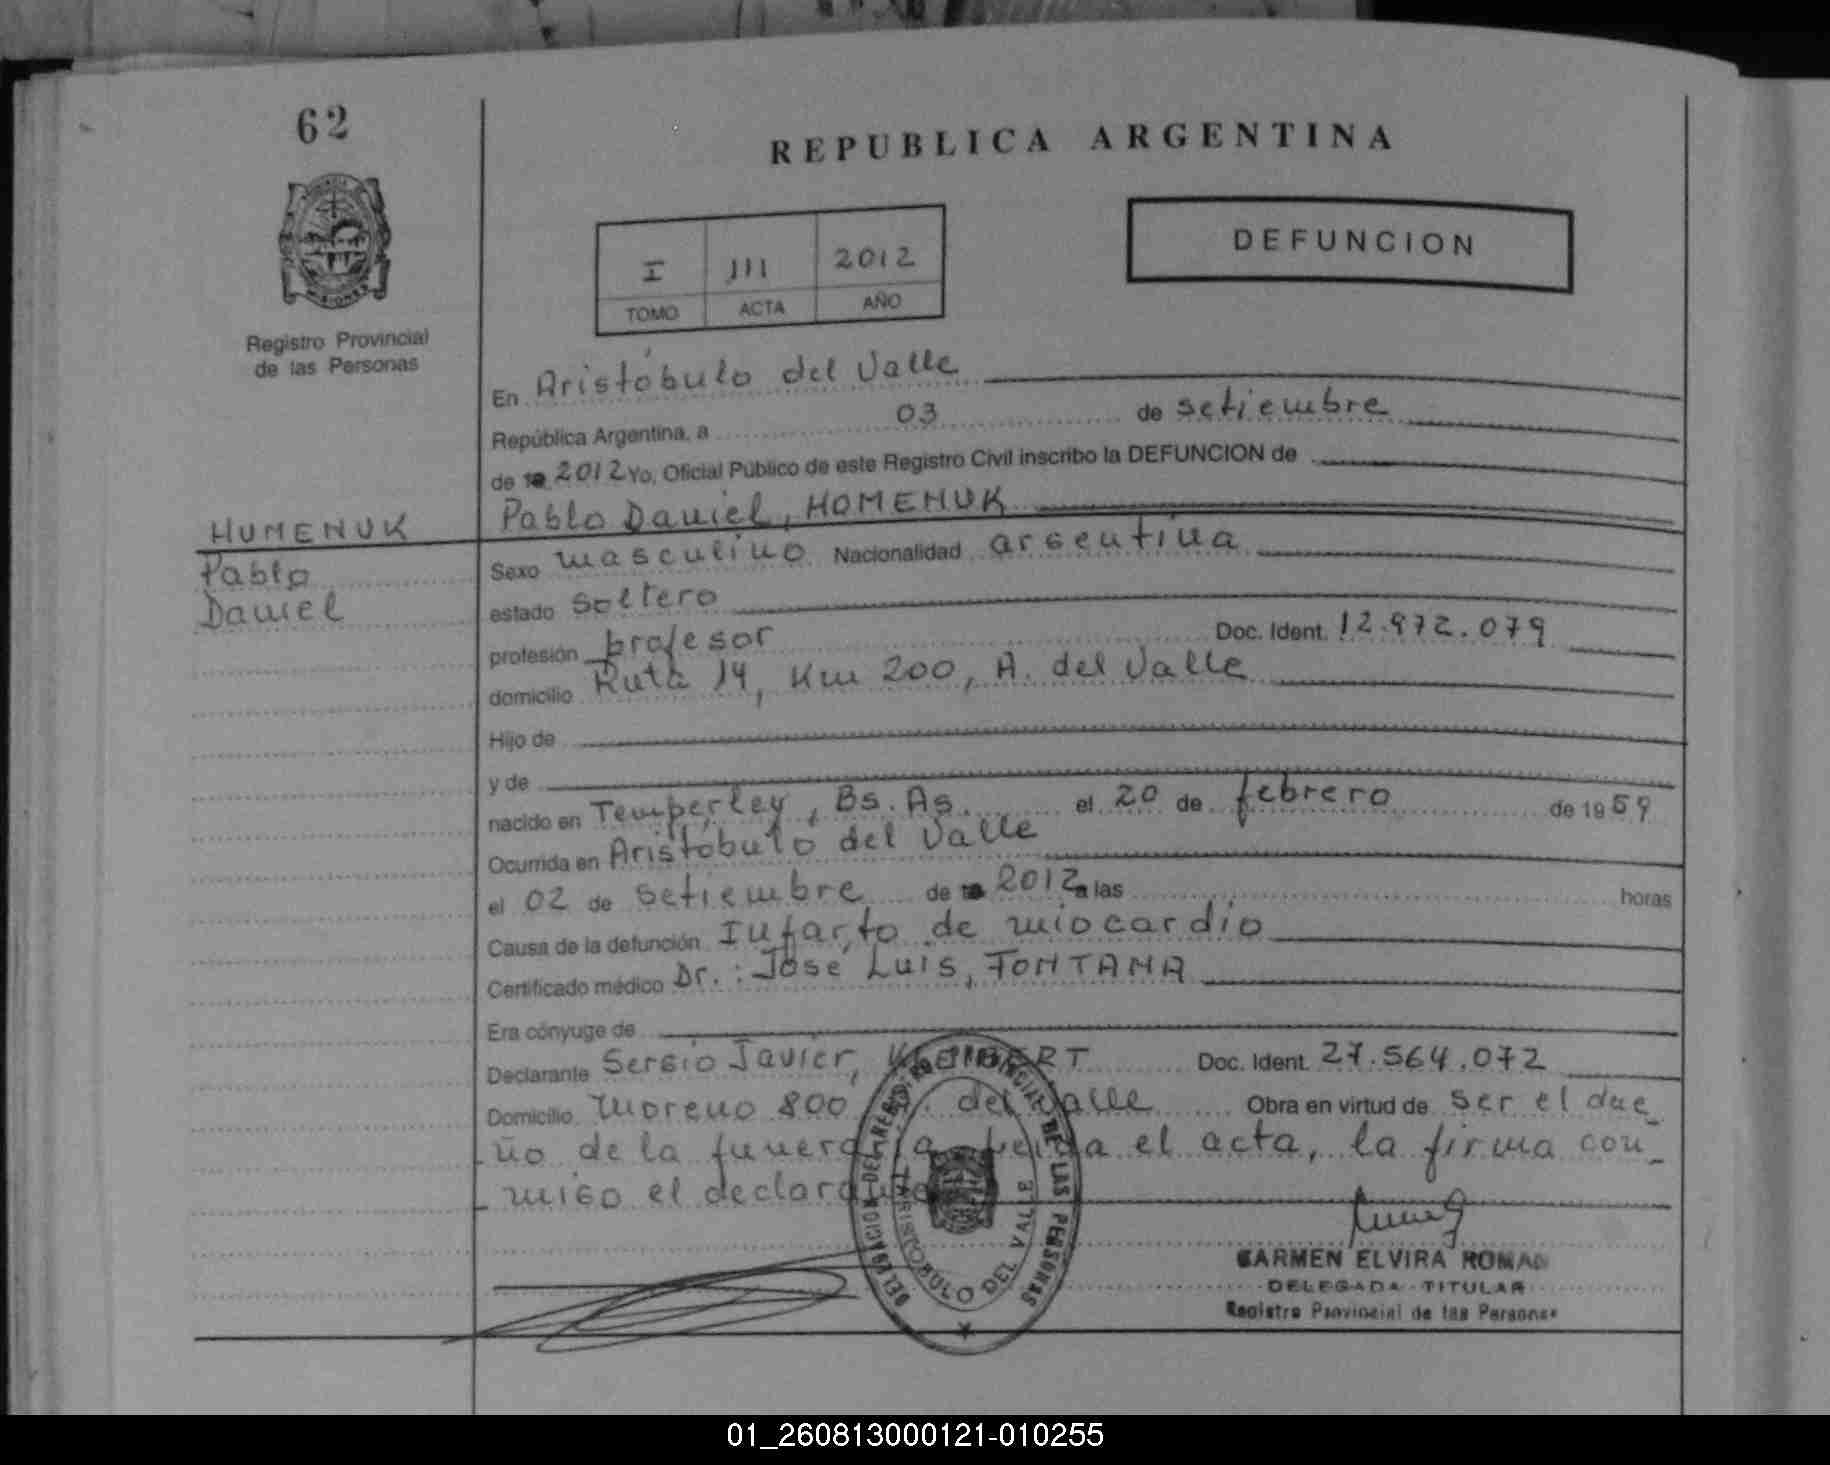 62
REPUBLICA ARGENTINA
DEFUNCION
I 111 2012
TOMO ACTA AÑO
Registro Provincial
de las Personas
En Aristóbulo del Valle
República Argentina, a 03 de setiembre
de 2012 Yo, Oficial Público de este Registro Civil inscribo la DEFUNCION de
Pablo Daniel, HOMENUK
HUMENUK
Pablo
Daniel
Sexo masculino Nacionalidad argentina
estado soltero
profesión profesor Doc. Ident. 12.972.079
domicilio Ruta 14, Km 200, A. del Valle
Hijo de
y de
nacido en Temperley, Bs. As. el 20 de febrero de 1959
Ocurrida en Aristóbulo del Valle
el 02 de setiembre de 2012 a las horas
Causa de la defunción Infarto de miocardio
Certificado médico Dr.: José Luis, FONTANA
Era cónyuge de
Declarante Sergio Javier, Doc. Ident. 27.564.072
Domicilio Moreno 800 A. del Valle Obra en virtud de ser el due_
ño de la funeraria leída el acta, la firma con_
migo el declarante
DELEGACION DEL REGISTRO PROVINCIAL DE LAS PERSONAS
ARISTOBULO DEL VALLE
CARMEN ELVIRA ROMAN
DELEGADA TITULAR
Registro Provincial de las Personas
01_260813000121-010255